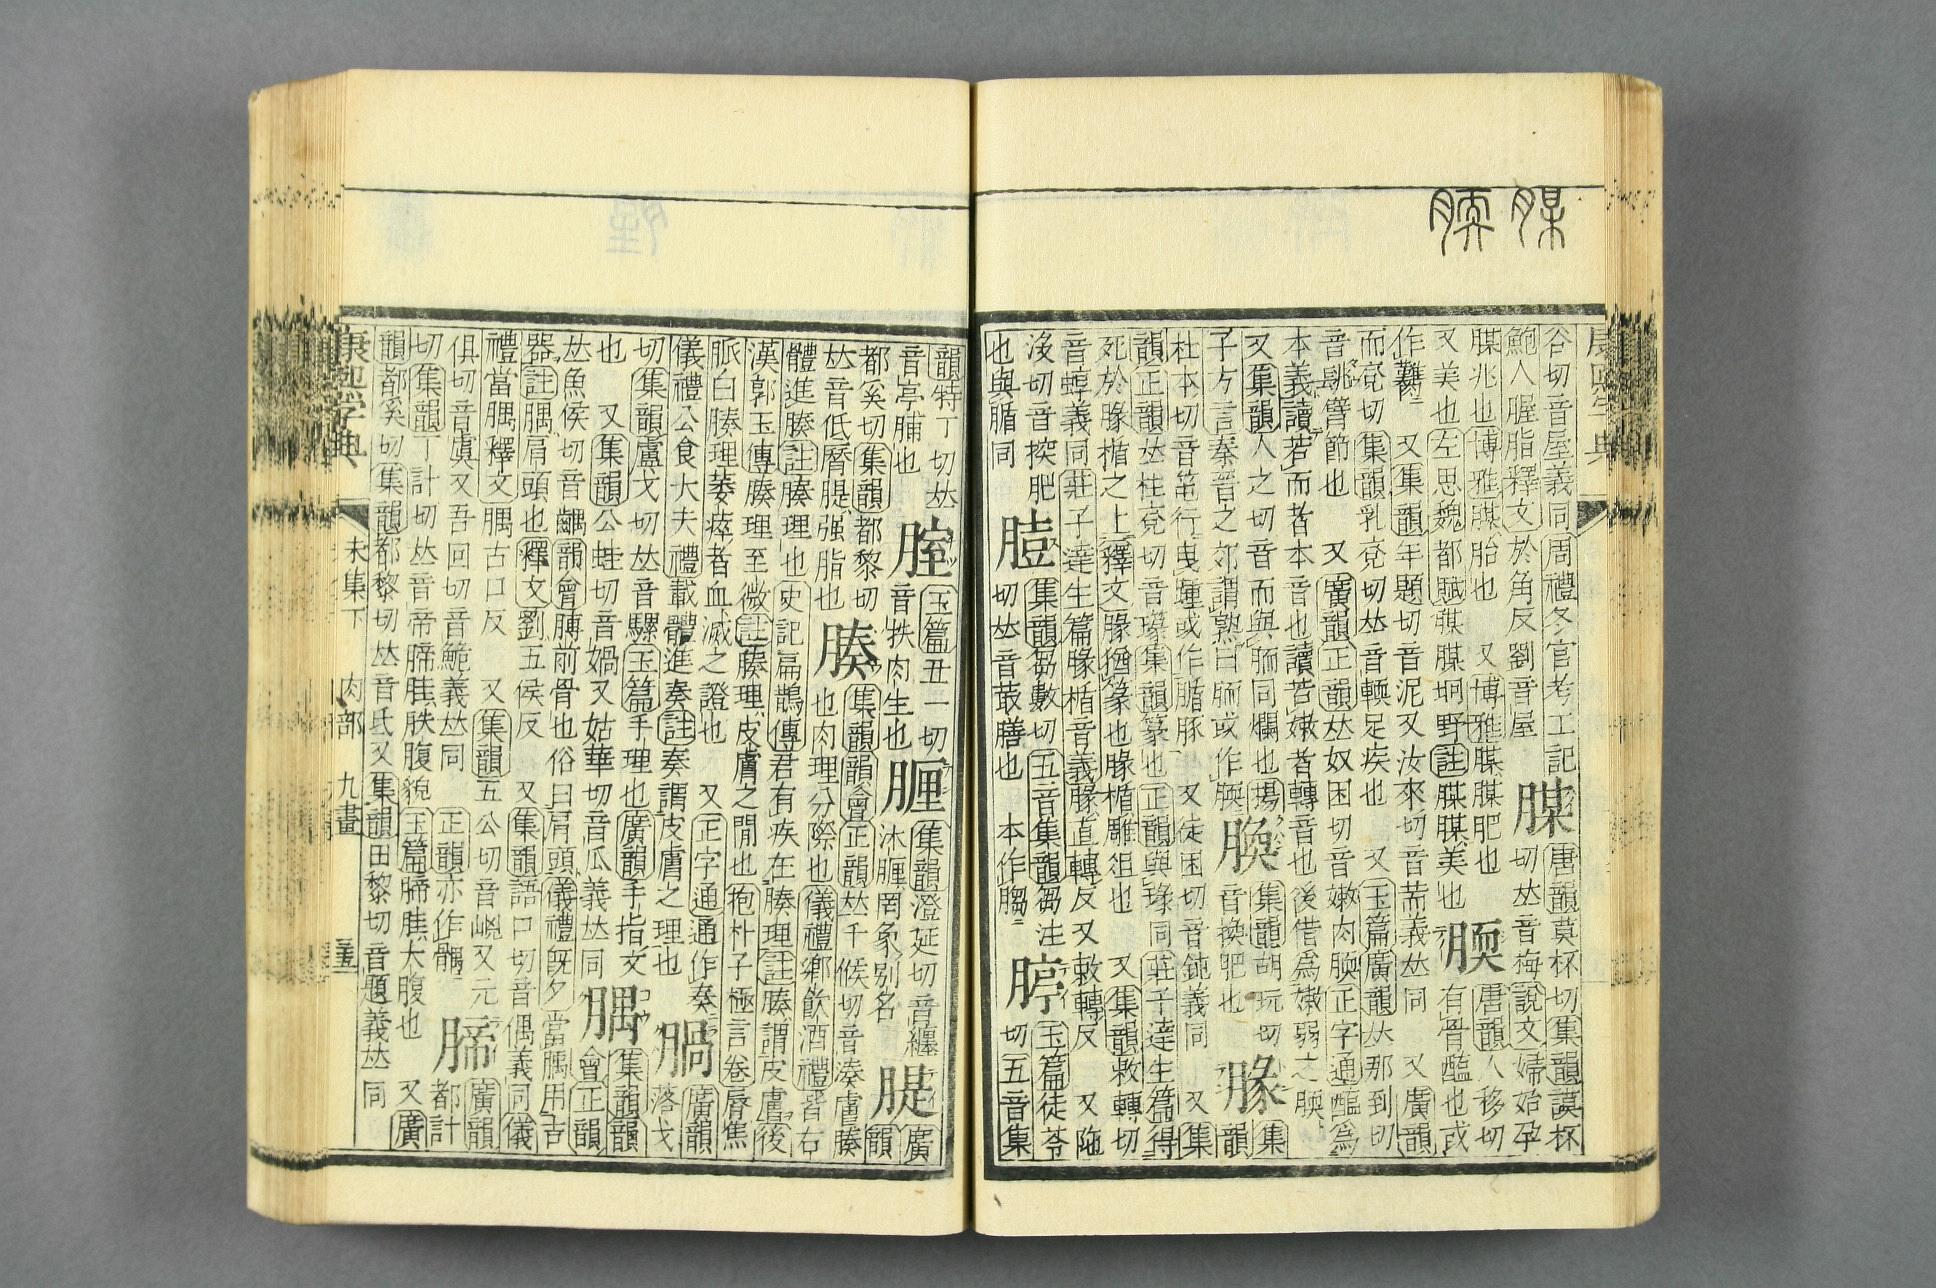 腜
腝
康熙字典
谷切音屋義同周禮冬官考工記
鮑人腥脂釋文於角反劉音屋
腜
唐韻莫杯切集韻謨杯
切𠀤音梅說文婦始孕
腜兆也博雅腜胎也 又博雅腜腜肥也
又美也左思魏都賦腜腜坰野註腜腜美也
腝
唐韻人移切
有骨醢也或
作臡 又集韻年題切音泥又汝來切音荋義𠀤同 又廣韻
而兗切集韻乳兗切𠀤音輭足疾也 又玉篇廣韻𠀤那到切
音臑臂節也 又廣韻正韻𠀤奴困切音嫩肉腝正字通醢爲
本義讀若而者本音也讀若嫩者轉音也後借爲嫩弱之腝
又集韻人之切音而與胹同爛也揚
子方言秦晉之郊謂熟曰胹或作腝
腞
集韻胡玩切
音換肥也
腞
集
韻
杜本切音笹行曳踵或作腯豚 又徒困切音鈍義同 又集
韻正韻𠀤柱兗切音瑑集韻篆也正韻與瑑同莊子達生篇得
死於腞楯之上釋文腞猶篆也腞楯雕俎也 又集韻敕轉切
音䏝義同莊子達生篇腞楯音義腞直轉反又敕轉反 又陁
沒切音揬肥
也與腯同
䐢
集韻芻數切五音集韻芻注
切𠀤音菆膳也 本作膓
腣
玉篇徒苓
切五音集
韻特丁切𠀤
音亭脯也
腟
玉篇丑一切
音抶肉生也
𦞢
集韻澄延切音纏
沐𦞢罔象別名
腣
廣
韻
都奚切集韻都黎切
𠀤音低厬腣强脂也
腠
集韻韻會正韻𠀤千候切音湊膚腠
也肉理分際也儀禮鄉飮酒禮晉右
體進腠註腠理也史記扁鵲傳君有疾在腠理註腠謂皮膚後
漢郭玉傳腠理至微註腠理皮膚之閒也抱朴子極言卷脣焦
脈白腠理萎瘁者血減之證也 又正字通通作奏
儀禮公食大夫禮載體進奏註奏謂皮膚之理也
腡
廣韻
落戈
切集韻盧戈切𠀤音騾玉篇手理也廣韻手指文
也 又集韻公蛙切音媧又姑華切音瓜義𠀤同
腢
集韻韻
會正韻
𠀤魚侯切音齵韻會膊前骨也俗曰肩頭儀禮旣夕當腢用吉
器註腢肩頭也釋文劉五侯反 又集韻語口切音偶義同儀
禮當腢釋文腢古口反 又集韻五公切音㟅又元
俱切音虞又吾回切音鮠義𠀤同 正韻亦作髃
腣
廣韻
都計
切集韻丁計切𠀤音帝腣胿胅腹貌玉篇腣胿大腹也 又廣
韻都奚切集韻都黎切𠀤音氐又集韻田黎切音題義𠀤同
康熙字典
未集下
肉部
九畫